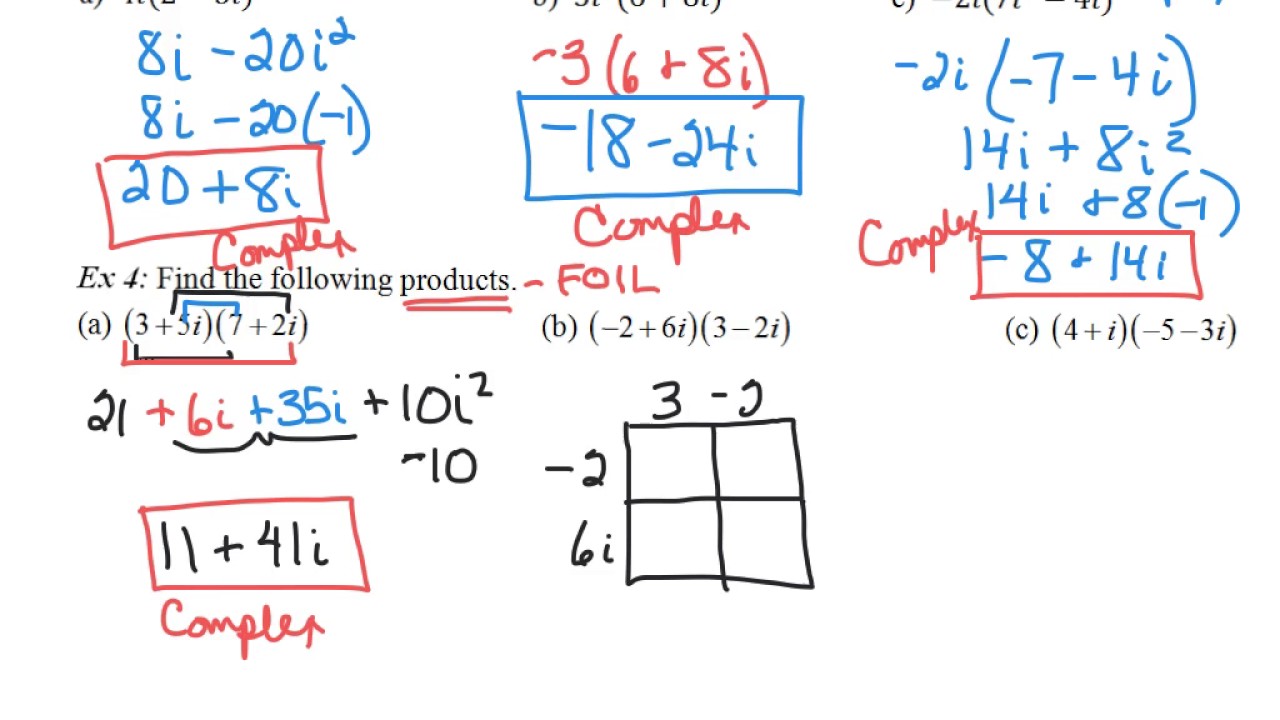 8i - 20i²
8i - 20(-1)
20 + 8i
Complex
-3(6 + 8i)
-18 - 24i
Complex
-2i(-7 - 4i)
14i + 8i²
14i + 8(-1)
Complex
-8 + 14i
Ex 4: Find the following products. - FOIL
(a) (3+5i)(7+2i)
21 + 6i + 35i + 10i²
-10
11 + 41i
Complex
(b) (-2+6i)(3-2i)
3 -2
-2
6i
(c) (4+i)(-5-3i)